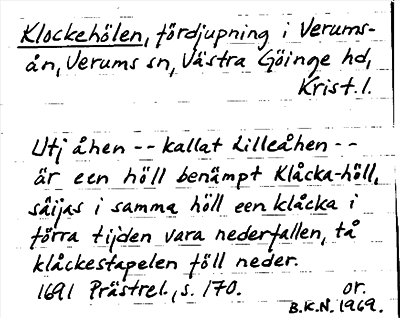 Klockehölen, fördjupning i Verums-
ån, Verums sn, Västra Göinge hd,
Krist. l.
Utj åhen -- kallat Lilleåhen --
är een höll benämpt Klåcka-höll,
säijas i samma höll een klåcka i
förra tijden vara nederfallen, tå
klåckestapelen föll neder.
1691 Prästrel., s. 170. or.
B.K.N. 1969.